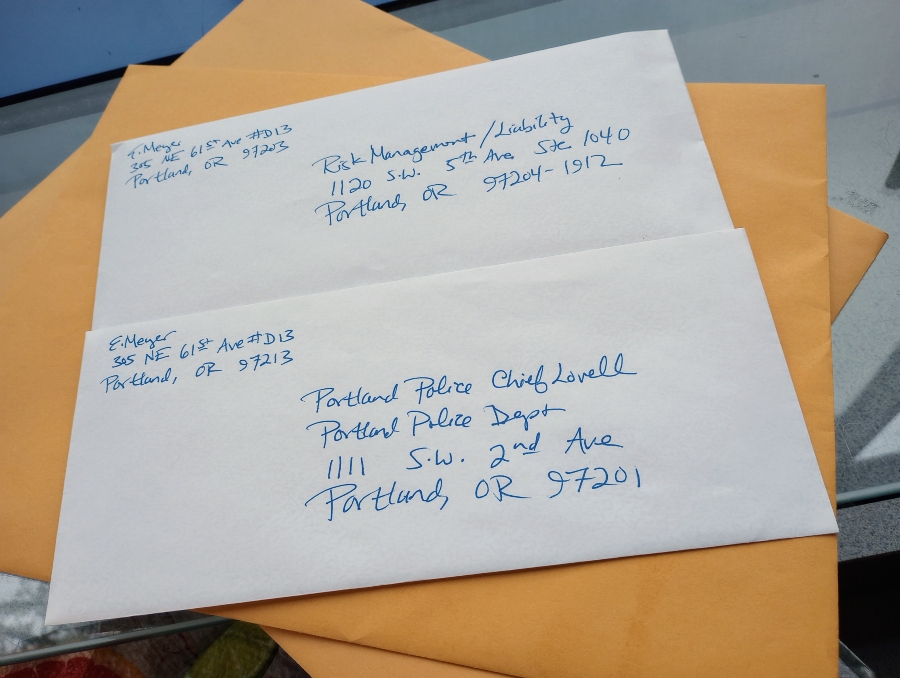 E. Meyer
305 NE 61st Ave #D13
Portland, OR 97203
Risk Management/Liability
1120 S.W. 5th Ave Ste 1040
Portland, OR 97204-1912
E. Meyer
305 NE 61st Ave #D13
Portland, OR 97213
Portland Police Chief Lovell
Portland Police Dept
1111 S.W. 2nd Ave
Portland, OR 97201